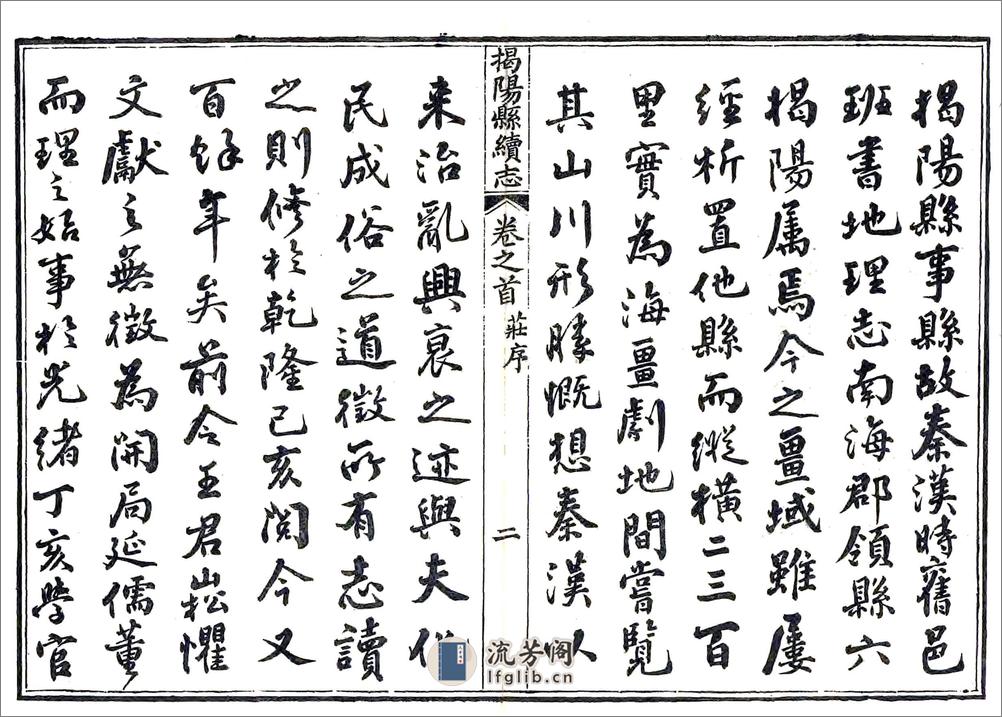 揭陽縣事縣故秦漢時舊邑
班書地理志南海郡領縣六
揭陽属焉今之畺域雖屢
經析置他縣而縱橫二三百
里實為海畺劇地間嘗覽
其山川形勝慨想秦漢以
揭陽縣續志 卷之首 莊序 二
来治亂興衰之迹與夫
民成俗之道徵所有志讀
之則修於乾隆己亥閱今又
百餘年矣前令王君崧懼
文獻之無徵為開局延儒董
而理之始事於光緒丁亥學官
流芳阁
lfglib.cn